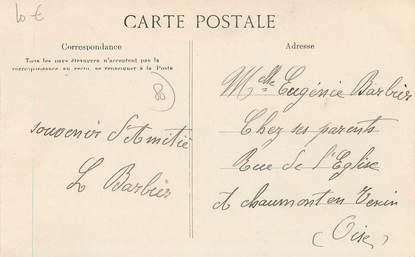 10 €
CARTE POSTALE
Correspondance
Tous les pays étrangers n'acceptent pas la
correspondance au recto, se renseigner à la Poste
80
souvenir d'Amitié
L Barbier
Adresse
Melle Eugénie Barbier
Chez ses parents
Rue de l'Eglise
à chaumont en Vexin
(Oise)